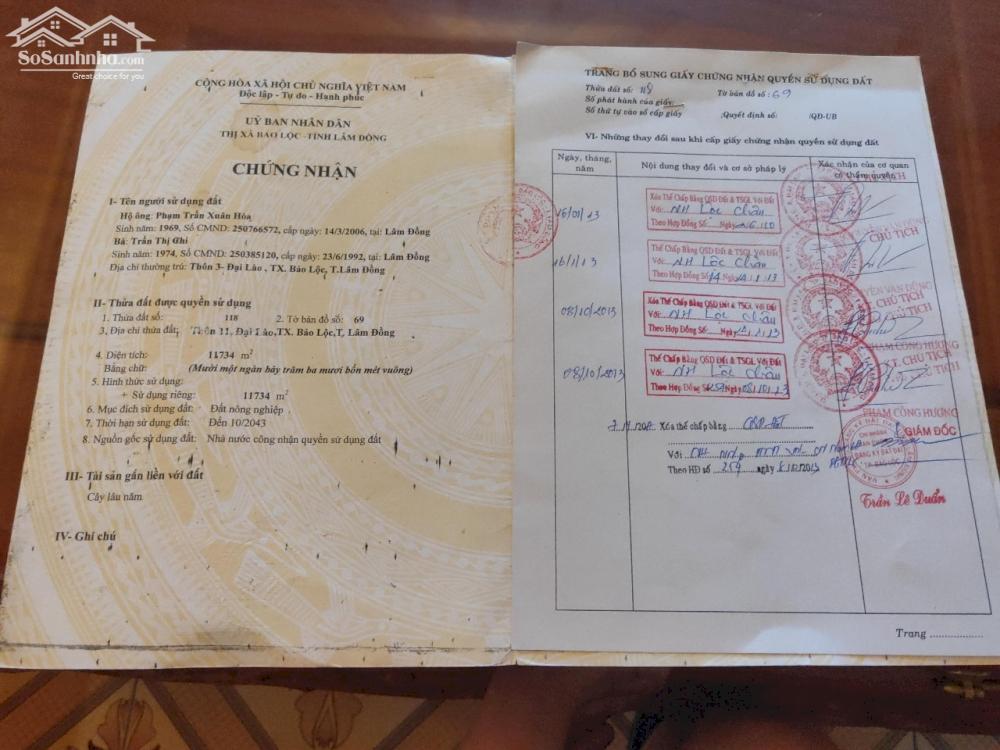 SoSanhnha.com
Great choice for you
CỘNG HÒA XÃ HỘI CHỦ NGHĨA VIỆT NAM
Độc lập - Tự do - Hạnh phúc
UỶ BAN NHÂN DÂN
THỊ XÃ BẢO LỘC - TỈNH LÂM ĐỒNG
CHỨNG NHẬN
I- Tên người sử dụng đất
Hộ ông: Phạm Trần Xuân Hòa
Sinh năm: 1969, Số CMND: 250766572, cấp ngày: 14/3/2006, tại: Lâm Đồng
Bà: Trần Thị Ghi
Sinh năm: 1974, Số CMND: 250385120, cấp ngày: 23/6/1992, tại: Lâm Đồng
Địa chỉ thường trú: Thôn 3- Đại Lào , TX. Bảo Lộc, T.Lâm Đồng
II- Thửa đất được quyền sử dụng
1. Thửa đất số: 118 2. Tờ bản đồ số: 69
3, Địa chỉ thửa đất: Thôn 11, Đại Lào,TX. Bảo Lộc,T, Lâm Đồng
4. Diện tích: 11734 m2
Bằng chữ: (Mười một ngàn bảy trăm ba mươi bốn mét vuông)
5. Hình thức sử dụng:
+ Sử dụng riêng: 11734 m2
6. Mục đích sử dụng đất: Đất nông nghiệp
7. Thời hạn sử dụng đất: Đến 10/2043
8. Nguồn gốc sử dụng đất: Nhà nước công nhận quyền sử dụng đất
III- Tài sản gắn liền với đất
Cây lâu năm
IV- Ghi chú
TRANG BỔ SUNG GIẤY CHỨNG NHẬN QUYỀN SỬ DỤNG ĐẤT
Thửa đất số: 118 Tờ bản đồ số: 69
Số phát hành của giấy:
Số thứ tự vào sổ cấp giấy ,Quyết định số: /QĐ-UB
VI- Những thay đổi sau khi cấp giấy chứng nhận quyền sử dụng đất
Ngày, tháng, năm
Nội dung thay đổi và cơ sở pháp lý
Xác nhận của cơ quan có thẩm quyền
16/01/13
Xóa Thế Chấp Bằng QSD Đất & TSGL Với Đất
Với: NH Lộc Châu
Theo Hợp Đồng Số Ngày
16/1/13
Thế Chấp Bằng QSD Đất & TSGL Với Đất
Với: NH Lộc Châu
Theo Hợp Đồng Số 14 Ngày 14.1.13
CHỦ TỊCH
08/10/2013
Xóa Thế Chấp Bằng QSD Đất & TSGL Với Đất
Với: NH Lộc Châu
Theo Hợp Đồng Số Ngày
CHỦ TỊCH
08/10/2013
Thế Chấp Bằng QSD Đất & TSGL Với Đất
Với: NH Lộc Châu
Theo Hợp Đồng Số 259 Ngày 08/10/13
PHẠM CÔNG HƯƠNG
KT. CHỦ TỊCH
PHẠM CÔNG HƯƠNG
Xóa thế chấp bằng QSD đất
GIÁM ĐỐC
Với
Theo HĐ số 259 ngày 8/10/2013
Trần Lê Duẩn
Trang